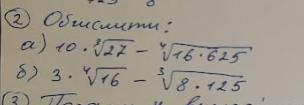 ② Обчислити:
а) 10 · ³√27 − ⁴√16·625
б) 3 · ⁴√16 − ³√8·125